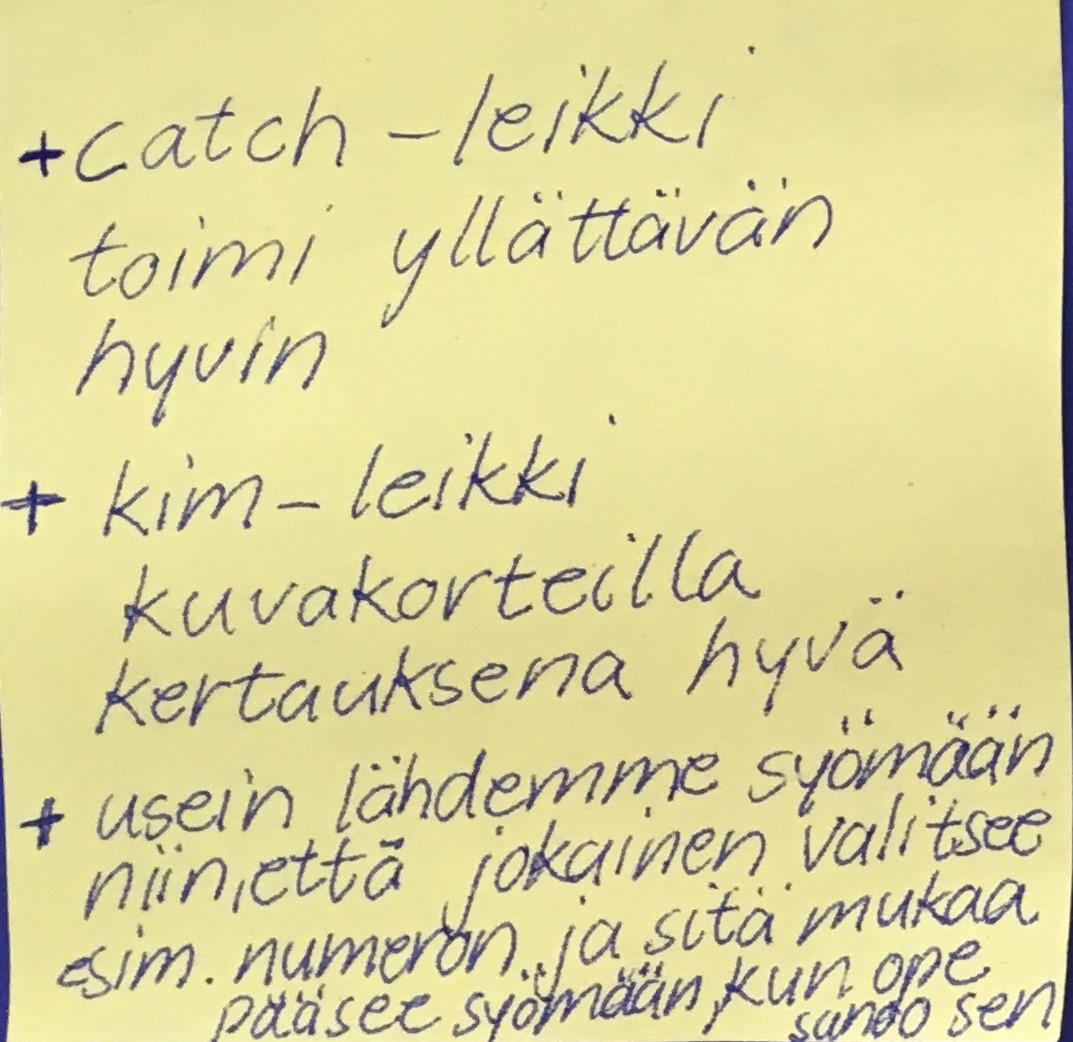 +catch-leikki
toimi yllättävän
hyvin
+ kim-leikki
kuvakorteilla
kertauksena hyvä
+ usein lähdemme syömään
niin, että jokainen valitsee
esim. numeron ja sitä mukaa
pääsee syömään, kun ope
sanoo sen